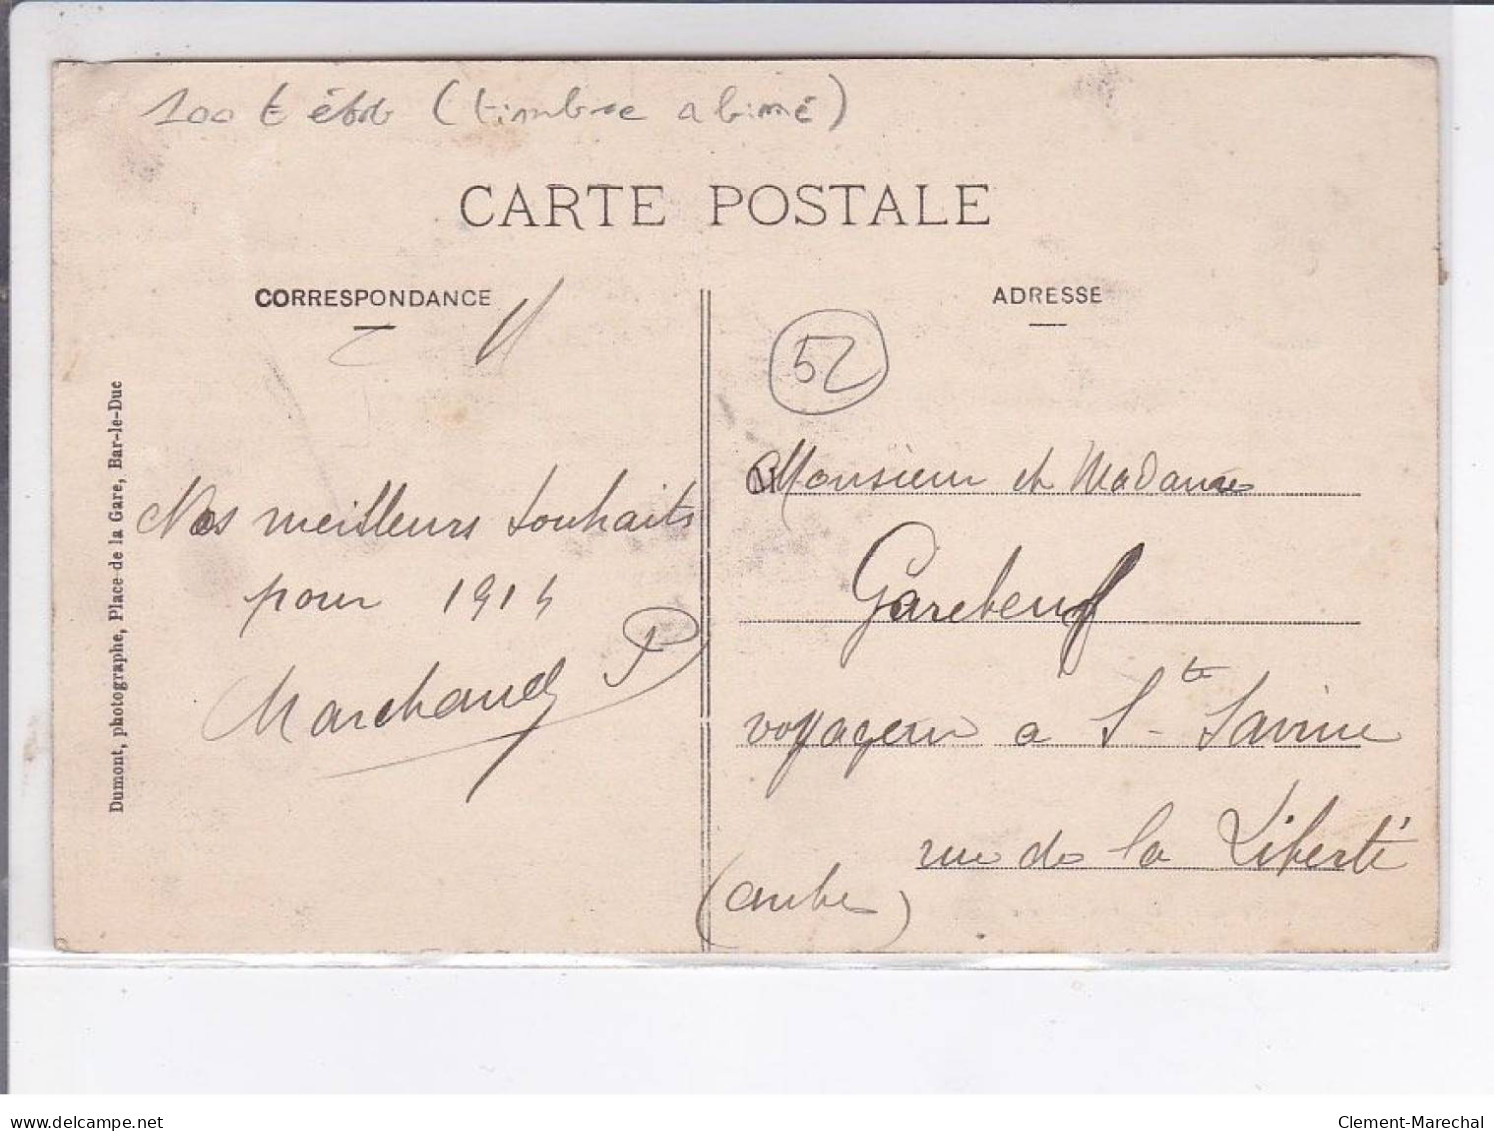 100 t (timbre abimé)
CARTE POSTALE
CORRESPONDANCE
ADRESSE
52
Dumont, photographe, Place de la Gare, Bar-le-Duc
Nos meilleurs souhaits
pour 1914
Marchand P
Monsieur et Madame
Garebeuf
voyageur a Ste Savine
rue de la Liberté
(aube)
delcampe.net
Clement-Marechal